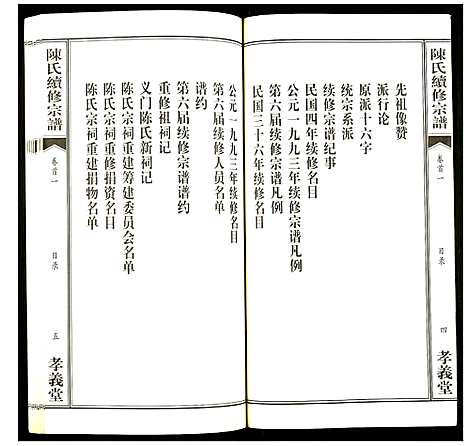 陳氏續修宗譜
卷首一
目录
四
孝義堂
先祖像赞
派行论
原派十六字
统宗系派
续修宗谱纪事
民国四年续修名目
公元一九九三年续修宗谱凡例
第六届续修宗谱凡例
民国三十六年续修名目
公元一九九三年续修名目
第六届续修人员名单
谱约
第六届续修宗谱谱约
重修祖祠记
义门陈氏新祠记
陈氏宗祠重建筹建委员会名单
陈氏宗祠重修捐资名目
陈氏宗祠重建捐物名单
陳氏續修宗譜
卷首一
目录
五
孝義堂